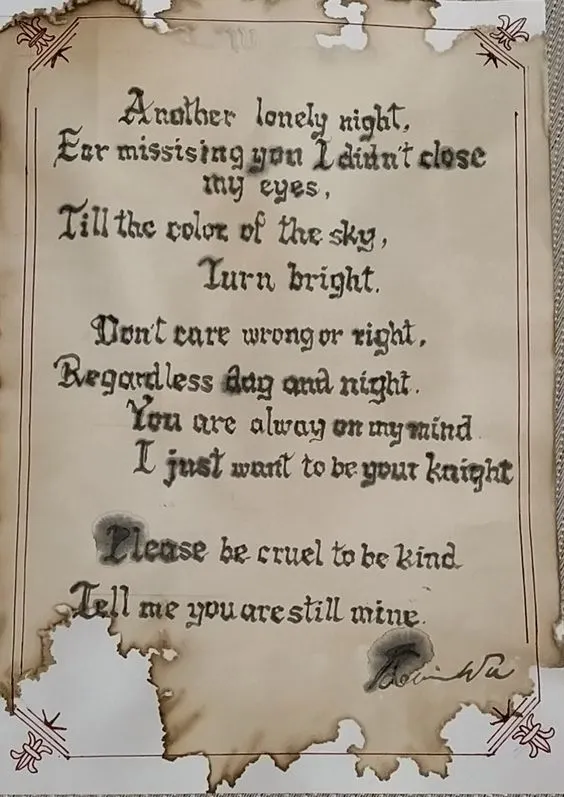 Another lonely night,
For missising you I didn't close
my eyes,
Till the color of the sky,
Turn bright.
Don't care wrong or right,
Regardless day and night.
You are alway on my mind
I just want to be your knight
Please be cruel to be kind
Tell me you are still mine.